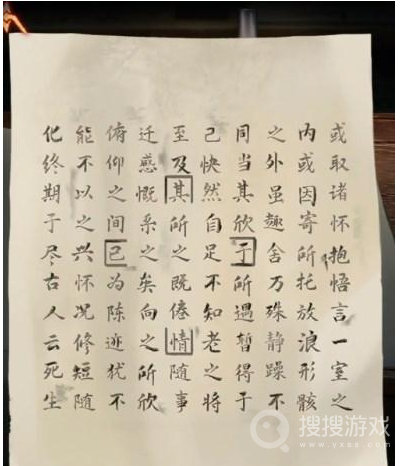 或取诸怀抱悟言一室之
内或因寄所托放浪形骸
之外虽趣舍万殊静躁不
同当其欣于所遇暂得于
己快然自足不知老之将
至及其所之既倦情随事
迁感慨系之矣向之所欣
俯仰之间已为陈迹犹不
能不以之兴怀况修短随
化终期于尽古人云死生
搜搜游戏